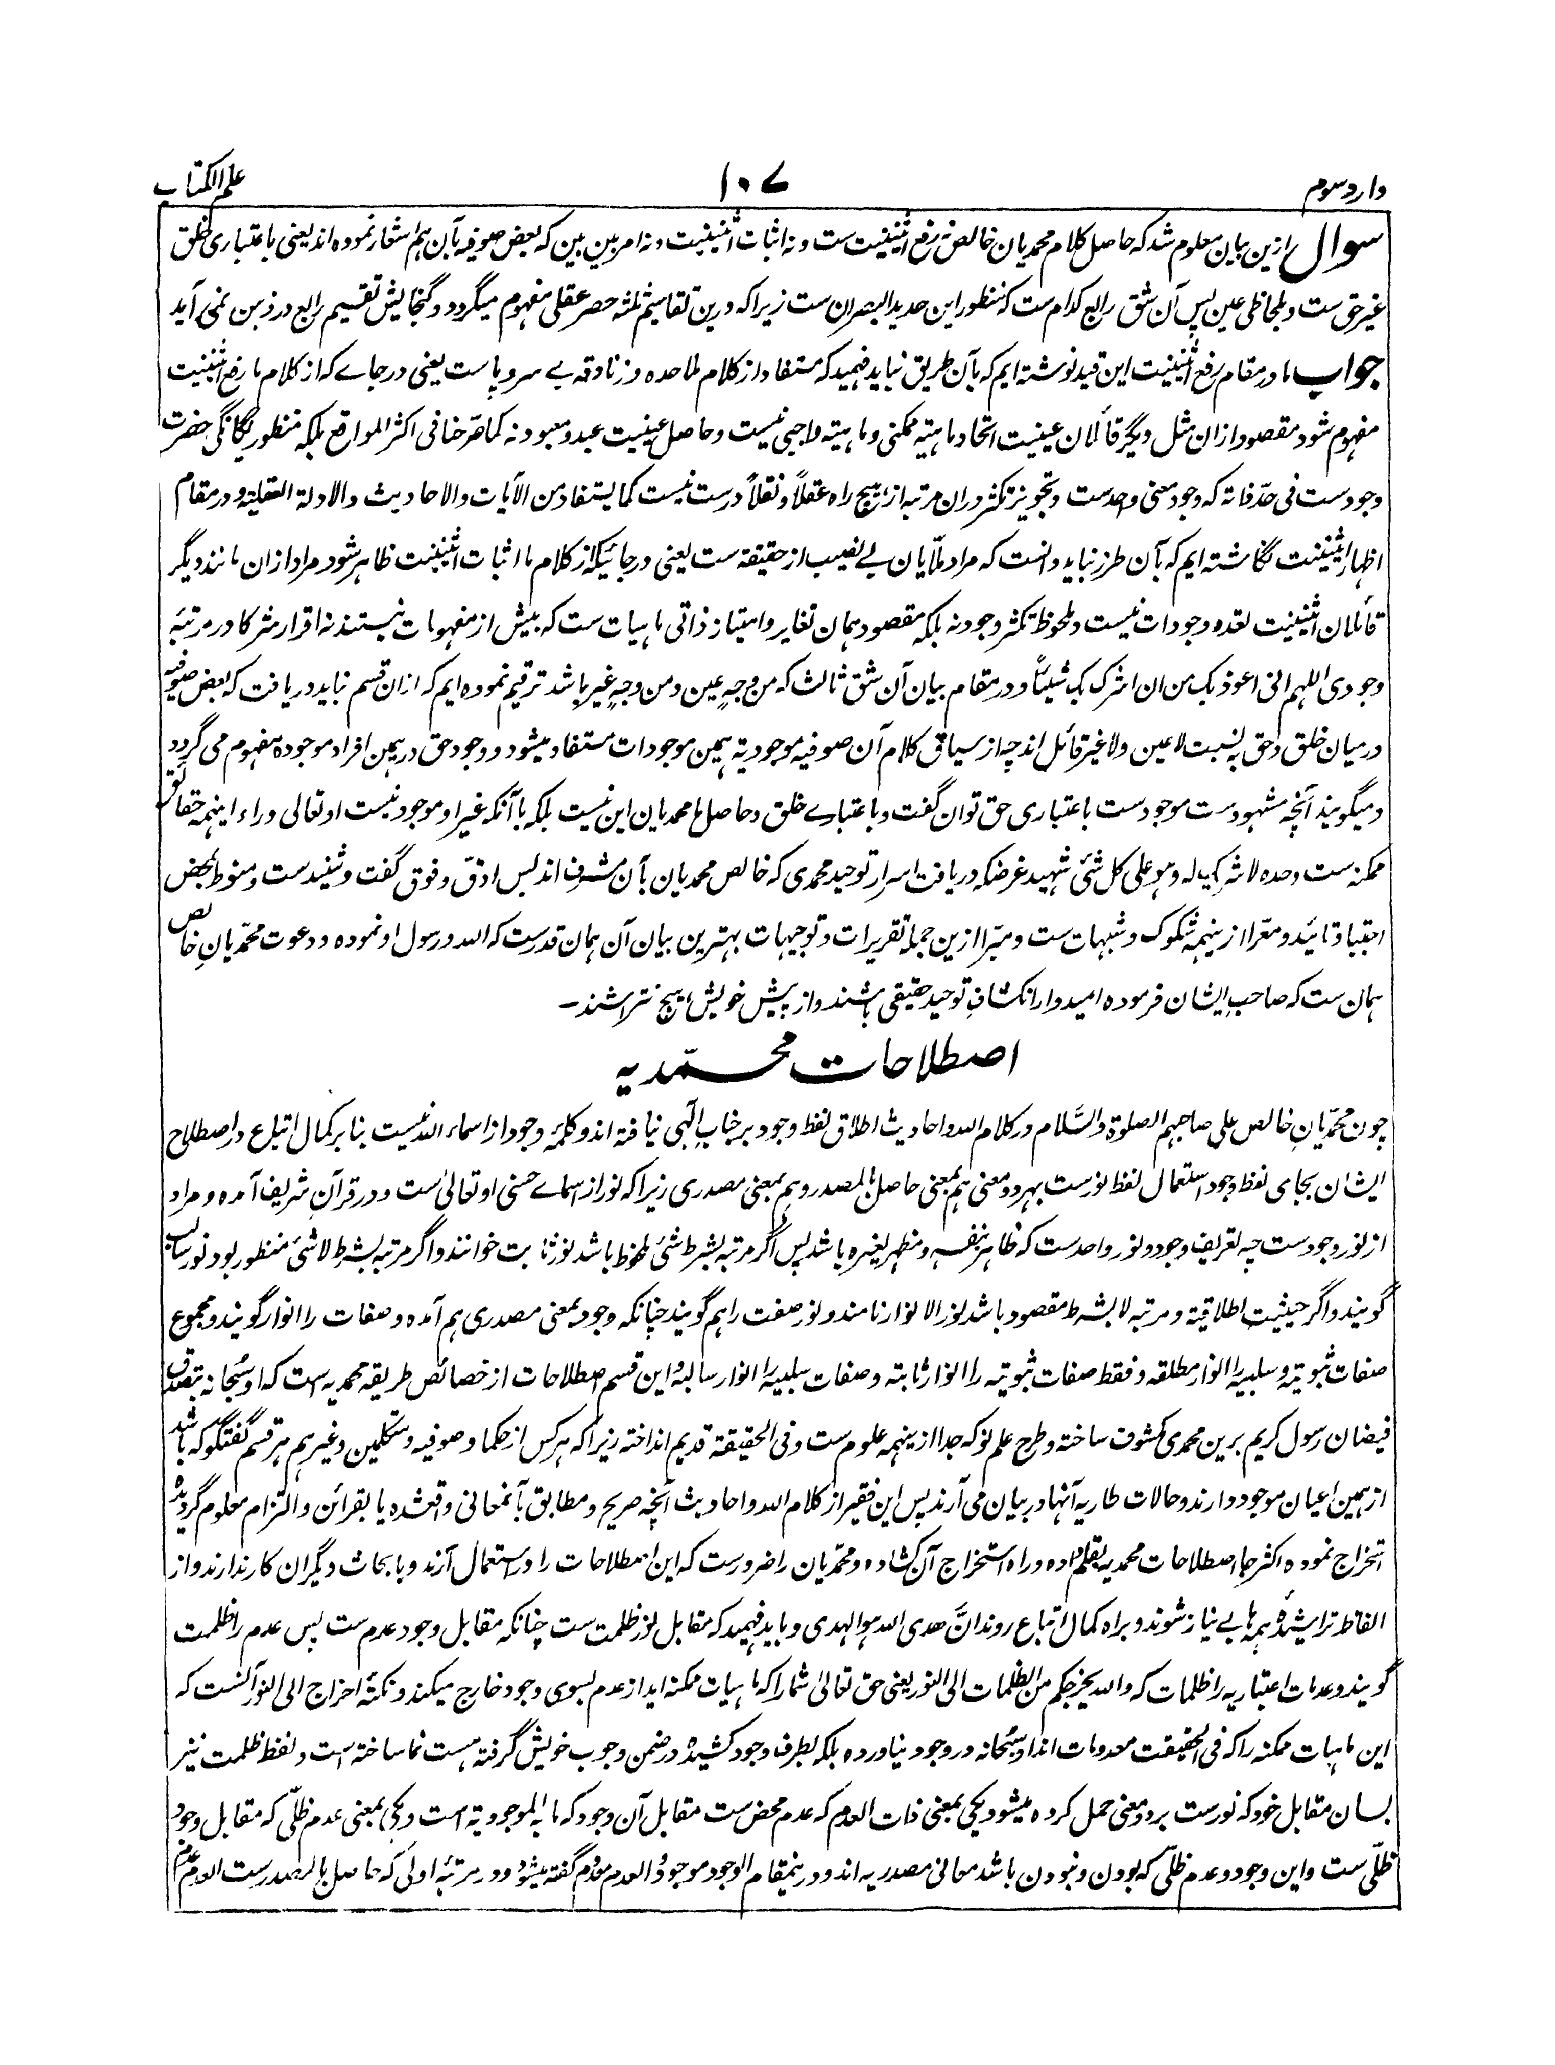 وارد سوم ۱۰۷ علم الکتاب
سوال ازین بیان معلوم شد که حاصل کلام محمدیان خالص نه رفع اثنینیت ست و نه اثبات اثنینیت و نه امر بین بین که بعض صوفیه بآن هم اشعار نموده اند یعنی باعتباری خلق
غیر حق ست و بلحاظی عین پس آن شق رابع کدام ست که منظور این حدید البصران ست زیرا که درین تقاسیم ثلثه حصر عقلی مفهوم میگردد و گنجایش تقسیم رابع در ذهن نمی آید
جواب ما در مقام رفع اثنینیت این قید نوشته ایم که بآن طریق نباید فهمید که مستفاد از کلام ملاحده و زنادقه بے سروپاست یعنی در جاے که از کلام ما رفع اثنینیت
مفهوم شود مقصود ازان مثل دیگر قائلان عینیت اتحاد ماهیته ممکنی و ماهیته واجبی نیست و حاصل عینیت عبد و معبود نه کما صرّحنا فی اکثر المواقع بلکه منظور یگانگی حضرت
وجودست فی حدّ ذاته که وجود معنی واحدست و تجویز تکثر دران مرتبه از هیچ راه عقلاً و نقلاً درست نیست کما یستفاد من الآیات والاحادیث والادلة العقلیة و در مقام
اظهار اثنینیت نگاشته ایم که بآن طرز نباید دانست که مراد ملّایان بے نصیب از حقیقة ست یعنی در جائیکه از کلام ما اثبات اثنینیت ظاهر شود مراد ازان مانند دیگر
قائلان اثنینیت تعدد وجودات نیست و ملحوظ تکثر وجود نه بلکه مقصود همان تغایر و امتیاز ذاتی ماهیات ست که بیش از مفهومات نیستند نه اقرار شرکا در مرتبهٔ
وجودی اللهم انی اعوذ بک من ان اشرک بک شیئاً و در مقام بیان آن شق ثالث که من وجهٍ عین و من وجهٍ غیر باشد ترقیم نموده ایم که ازان قسم نباید دریافت که بعض صوفیه
درمیان خلق و حق به نسبت لا عین ولا غیر قائل اند چه از سیاق کلام آن صوفیه موجودیة همین موجودات مستفاد میشود و وجود حق در همین افراد موجوده مفهوم می گردد
و میگویند آنچه مشهودست موجودست باعتباری حق توان گفت و باعتبارے خلق و حاصل ما محمدیان این نیست بلکه باآنکه غیر او موجود نیست او تعالی وراء اینهمه حقائق
ممکنه ست وحده لا شریک له و هو علی کل شئ شهید غرضکه دریافت اسرار توحید محمدی که خالص محمدیان بآن مشرف اند بس ادقّ و فوق گفت و شنیدست و منوط بمحض
اجتبا و تائید و معرّا از ینهمه شکوک و شبهات ست و مبرّا ازین جمله تقریرات و توجیهات بهترین بیان آن همان قدرست که الله و رسول او نموده و دعوت محمّدیانِ خالص
همان ست که صاحب ایشان فرموده امیدوار انکشاف توحید حقیقی باشند و از پیش خویش هیچ نتراشند –
اصطلاحات محمّدیه
چون محمّدیانِ خالص علی صاحبهم الصلوة والسَّلام در کلام الله و احادیث اطلاق لفظ وجود بر جناب الٓهی نیافته اند و کلمهٔ وجود از اسماء الله نیست بنا بر کمال اتباع در اصطلاح
ایشان بجای لفظ وجود استعمال لفظ نورست بهر دو معنی هم بمعنی حاصل بالمصدر و هم بمعنی مصدری زیرا که نور از اسماے حسنی او تعالی ست و در قرآن شریف آمده و مراد
از نور وجودست چه تعریف وجود و نور واحدست که ظاهر بنفسه و مظهر لغیره باشد پس اگر مرتبه بشرط شئ ملحوظ باشد نور ثابت خوانند و اگر مرتبه بشرط لا شئ منظور بود نور سالب
گویند و اگر حیثیت اطلاقیة و مرتبه لا بشرط مقصود باشد نور الانوار نامند و نور صفت را هم گویند چنانکه وجود بمعنی مصدری هم آمده و صفات را انوار گویند و مجموع
صفات ثبوتیه و سلبیه را انوار مطلقه و فقط صفات ثبوتیه را انوار ثابته و صفات سلبیه را انوار سالبه و این قسم اصطلاحات از خصائص طریقه محمدیه است که او سبحانه بتصدق
فیضان رسول کریم برین محمدی مکشوف ساخته و طرح علم نو که جدا از ینهمه علوم ست و فی الحقیقة قدیم انداخته زیرا که هرکس از حکما و صوفیه و متکلمین و غیرهم هر قسم گفتگو که باشد
از همین اعیان موجود دارند و حالات طاریه آنها در بیان می آرند پس این فقیر از کلام الله و احادیث آنچه صریح و مطابق بآنمعانی واقعشده یا بقرائن و التزام معلوم گردیده
استخراج نموده اکثر جا اصطلاحات محمدیه بقلم داده و راه استخراج آن کشاده و محمّدیان را ضرورست که این اصطلاحات را در استعمال آرند و با بحاث دیگران کار ندارند و از
الفاظ تراشیدهٔ همه ها بے نیاز شوند و براه کمال اتباع روند انَّ هدی الله هو الهدی و باید فهمید که مقابل نور ظلمت ست چنانکه مقابل وجود عدم ست پس عدم را ظلمت
گویند و عدمات اعتباریه را ظلمات که والله یخرجکم من الظلمات الی النور یعنی حق تعالیٰ شما را که ماهیات ممکنه اید از عدم بسوی وجود خارج میکند و نکتهٔ اخراج الی النور آنست که
این ماهیات ممکنه را که فی الحقیقت معدومات اند او سبحانه در وجود نیاورده بلکه بطرف وجود کشیده در ضمن وجوب خویش گرفته هست نما ساخته است و لفظ ظلمت نیز
بسان مقابل خود که نورست بر دو معنی حمل کرده میشود یکی بمعنی ذات العدم که عدم محض ست مقابل آن وجود که ما به الموجودیة است و یکی بمعنی عدم ظلّی که مقابل وجود
ظلّی ست و این وجود و عدم ظلّی که بودن و نبودن باشد معانی مصدریه اند و درینمقام الوجود موجودٌ و العدم معدومٌ گفته میشود و در مرتبهٔ اولی که حاصل بالمصدرست العدم عدم